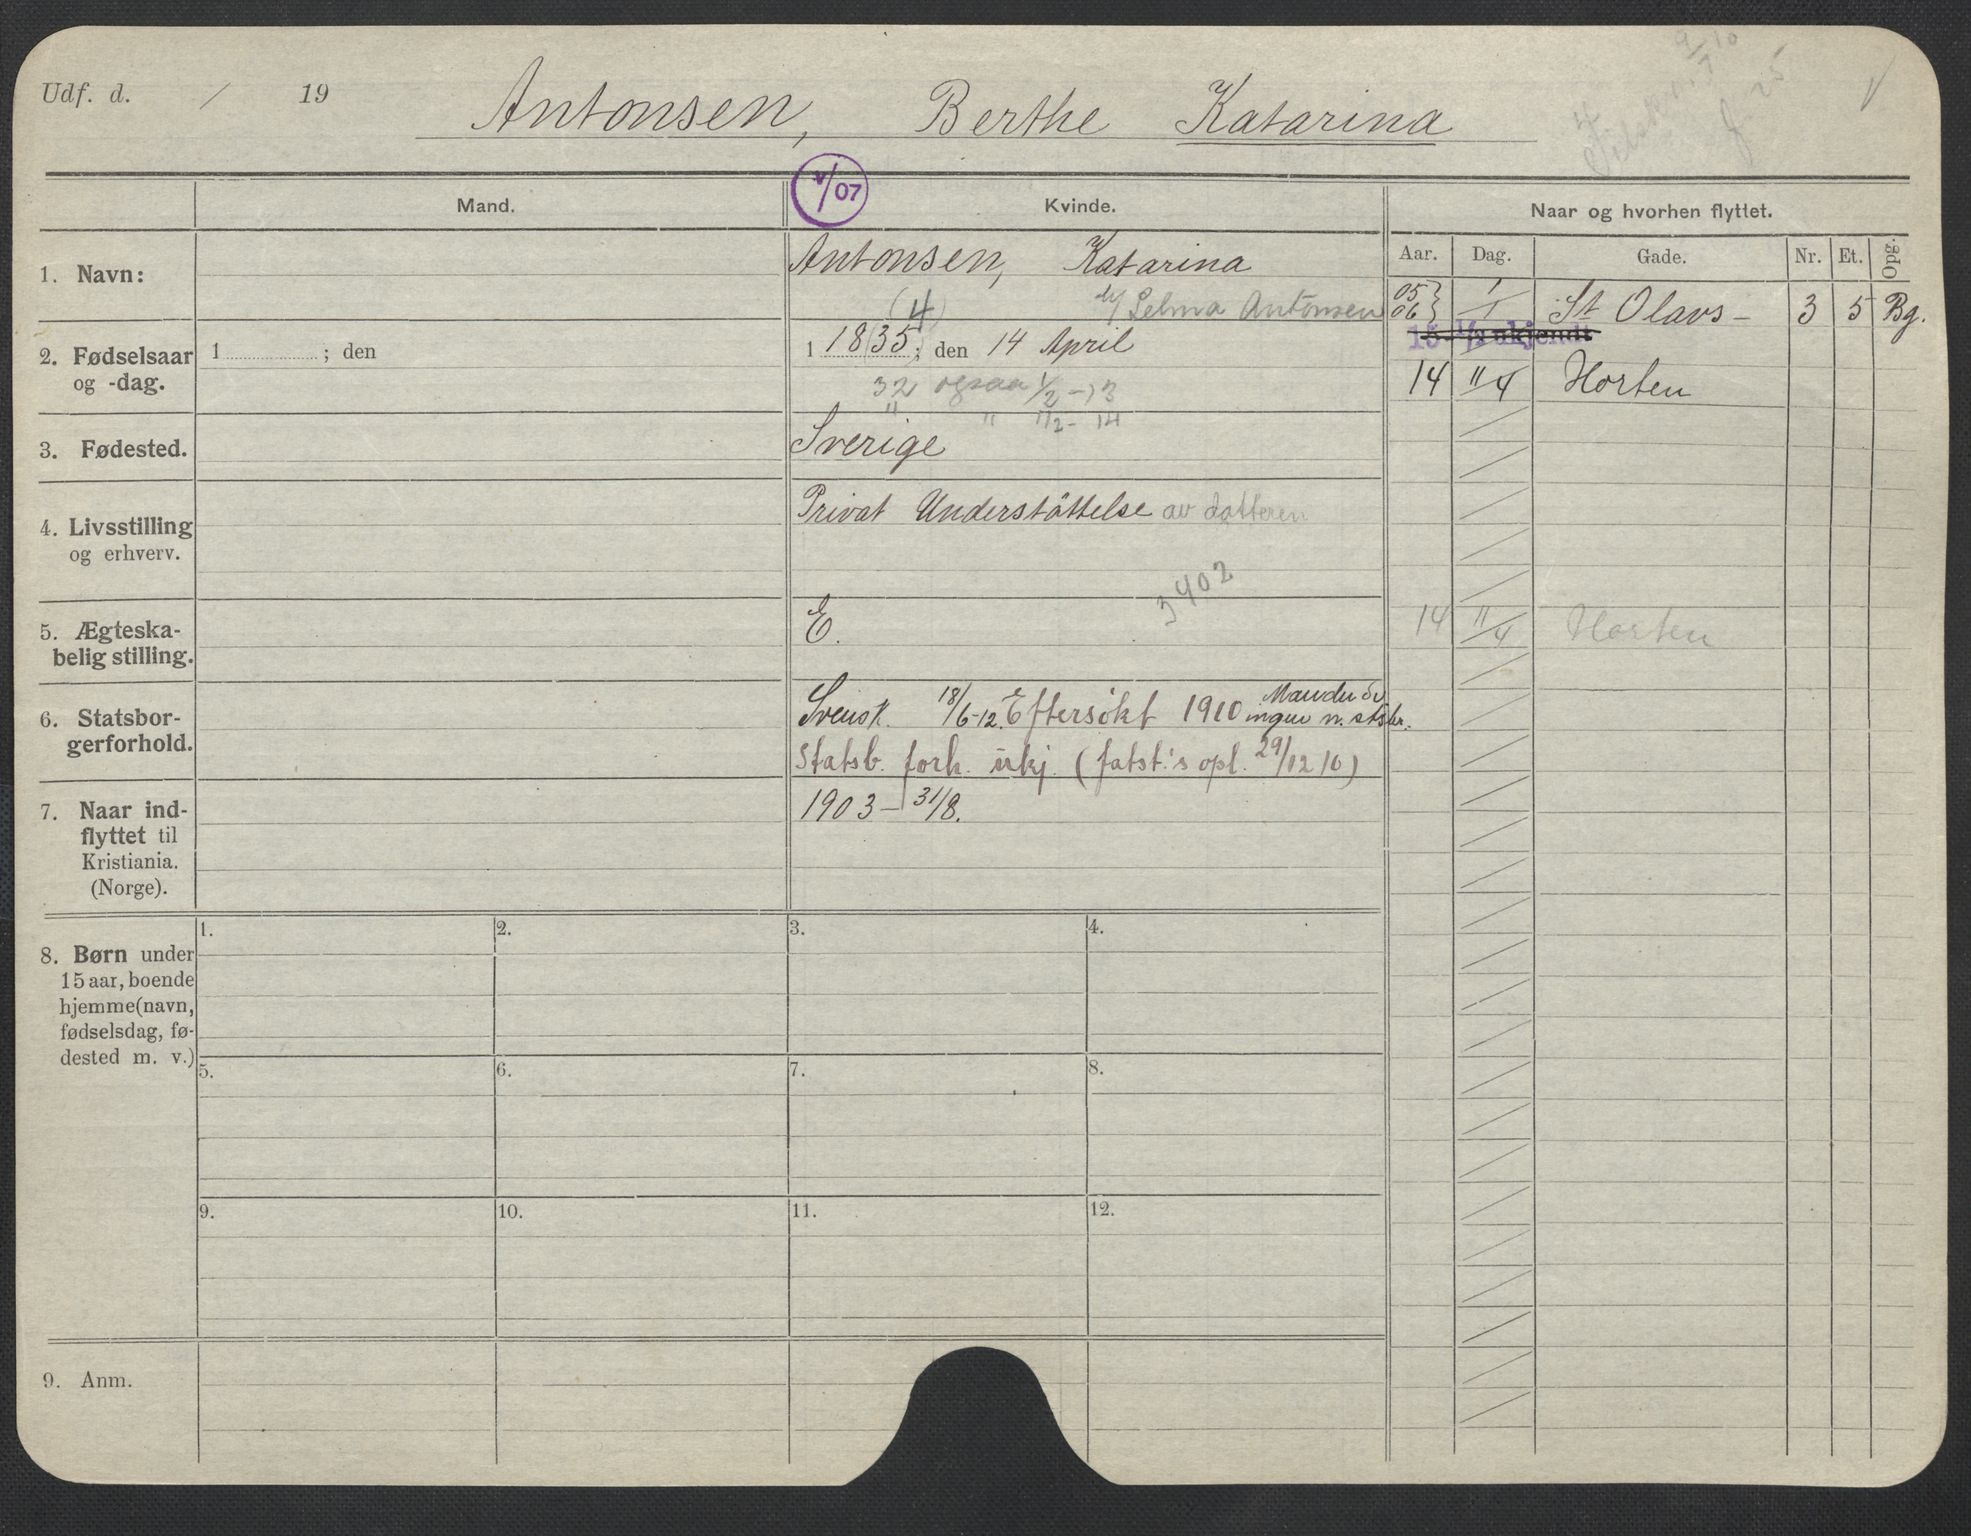 Udf. d. / 19
Antonsen, Berthe Katarina
V/07
Mand.
Kvinde.
Naar og hvorhen flyttet.
Aar. Dag. Gade. Nr. Et. Opg.
1. Navn:
Antonsen, Katarina
(4) h/ Selma Antonsen
05
06 } 1/1 St Olavs – 3 5 Bg.
15 1/2 ukjendt
14 11/4 Horten
2. Fødselsaar
og -dag.
1 ; den
1 1835 ; den 14 April
32 ogsaa 1/2 –13
" " 1/2 – 14
3. Fødested.
Sverige
4. Livsstilling
og erhverv.
Privat Understöttelse av datteren
3402
5. Ægteska-
belig stilling.
E.
14 11/4 Horten
6. Statsbor-
gerforhold.
Svensk. 18/6-12. Eftersökt 1910
ingen n. stsbr.
Statsb. forh. ukj. (fatst.'s opl. 29/12 10)
7. Naar ind-
flyttet til
Kristiania.
(Norge).
1903 – 31/8.
8. Børn under
15 aar, boende
hjemme (navn,
fødselsdag, fø-
dested m. v.)
1. 2. 3. 4.
5. 6. 7. 8.
9. 10. 11. 12.
9. Anm.